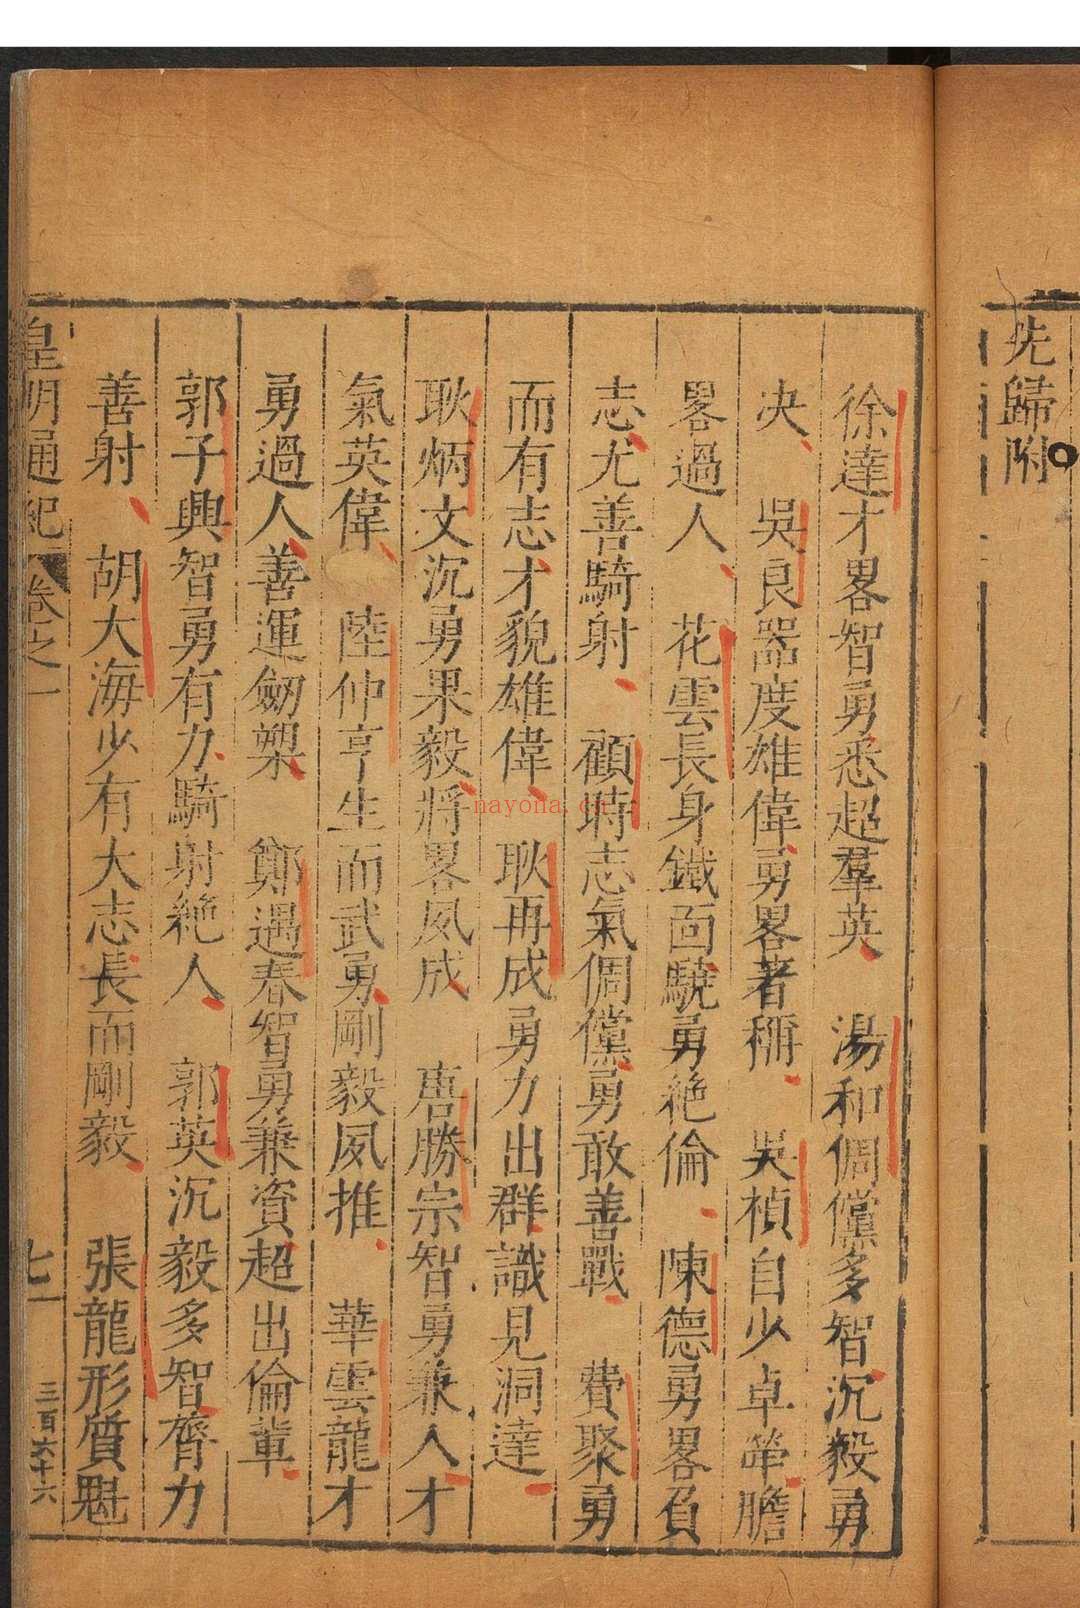 先歸附
徐達才畧智勇悉超羣英　湯和倜儻多智沉毅勇
决　吳良器度雄偉勇畧著稱　吳禎自少卓犖膽
畧過人　花雲長身鐵面驍勇絶倫　陳德勇畧負
志尤善騎射　顧時志氣倜儻勇敢善戰　費聚勇
而有志才貌雄偉　耿再成勇力出群識見洞達
耿炳文沉勇果毅將畧夙成　唐勝宗智勇兼人才
氣英偉　陸仲亨生而武勇剛毅夙推　華雲龍才
勇過人善運劒槊　鄭遇春智勇兼資超出倫輩
郭子興智勇有力騎射絶人　郭英沉毅多智膂力
善射　胡大海少有大志長而剛毅　張龍形質魁
皇明通紀　卷之一　七一　三百六十六
nayona.cn